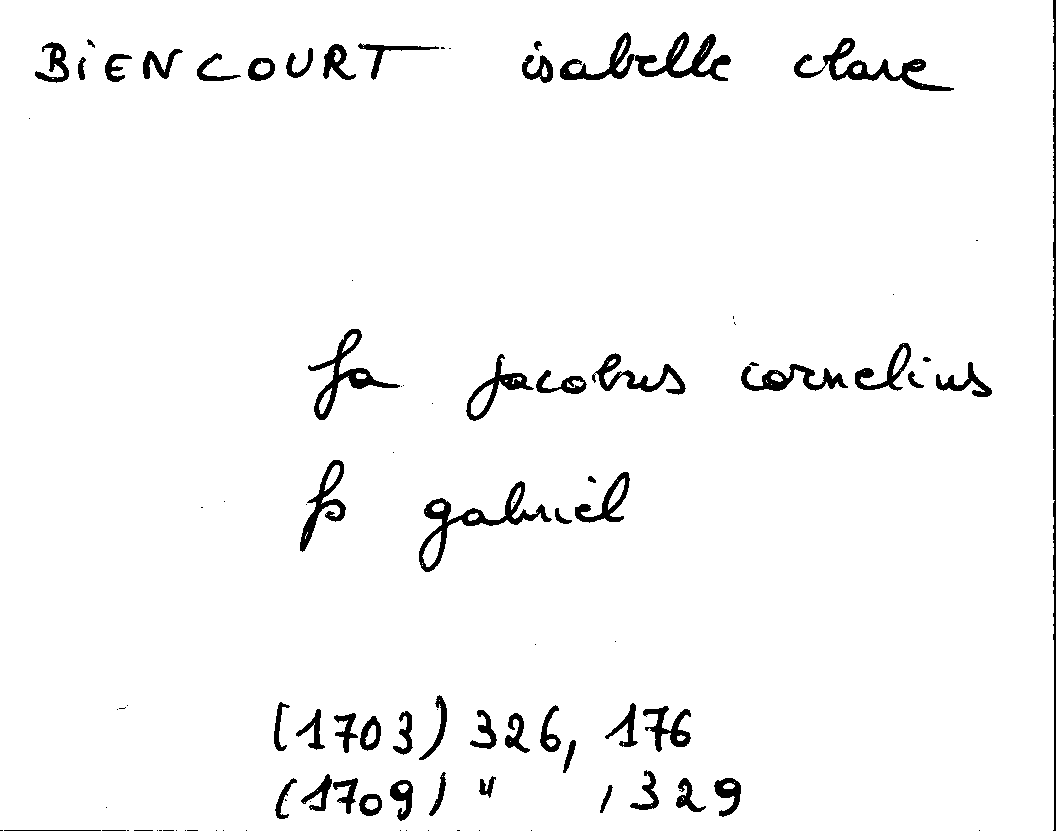 BiENCOURT isabelle clare
fa jacobus cornelius
fs gabriel
(1703) 326, 176
(1709) " , 329